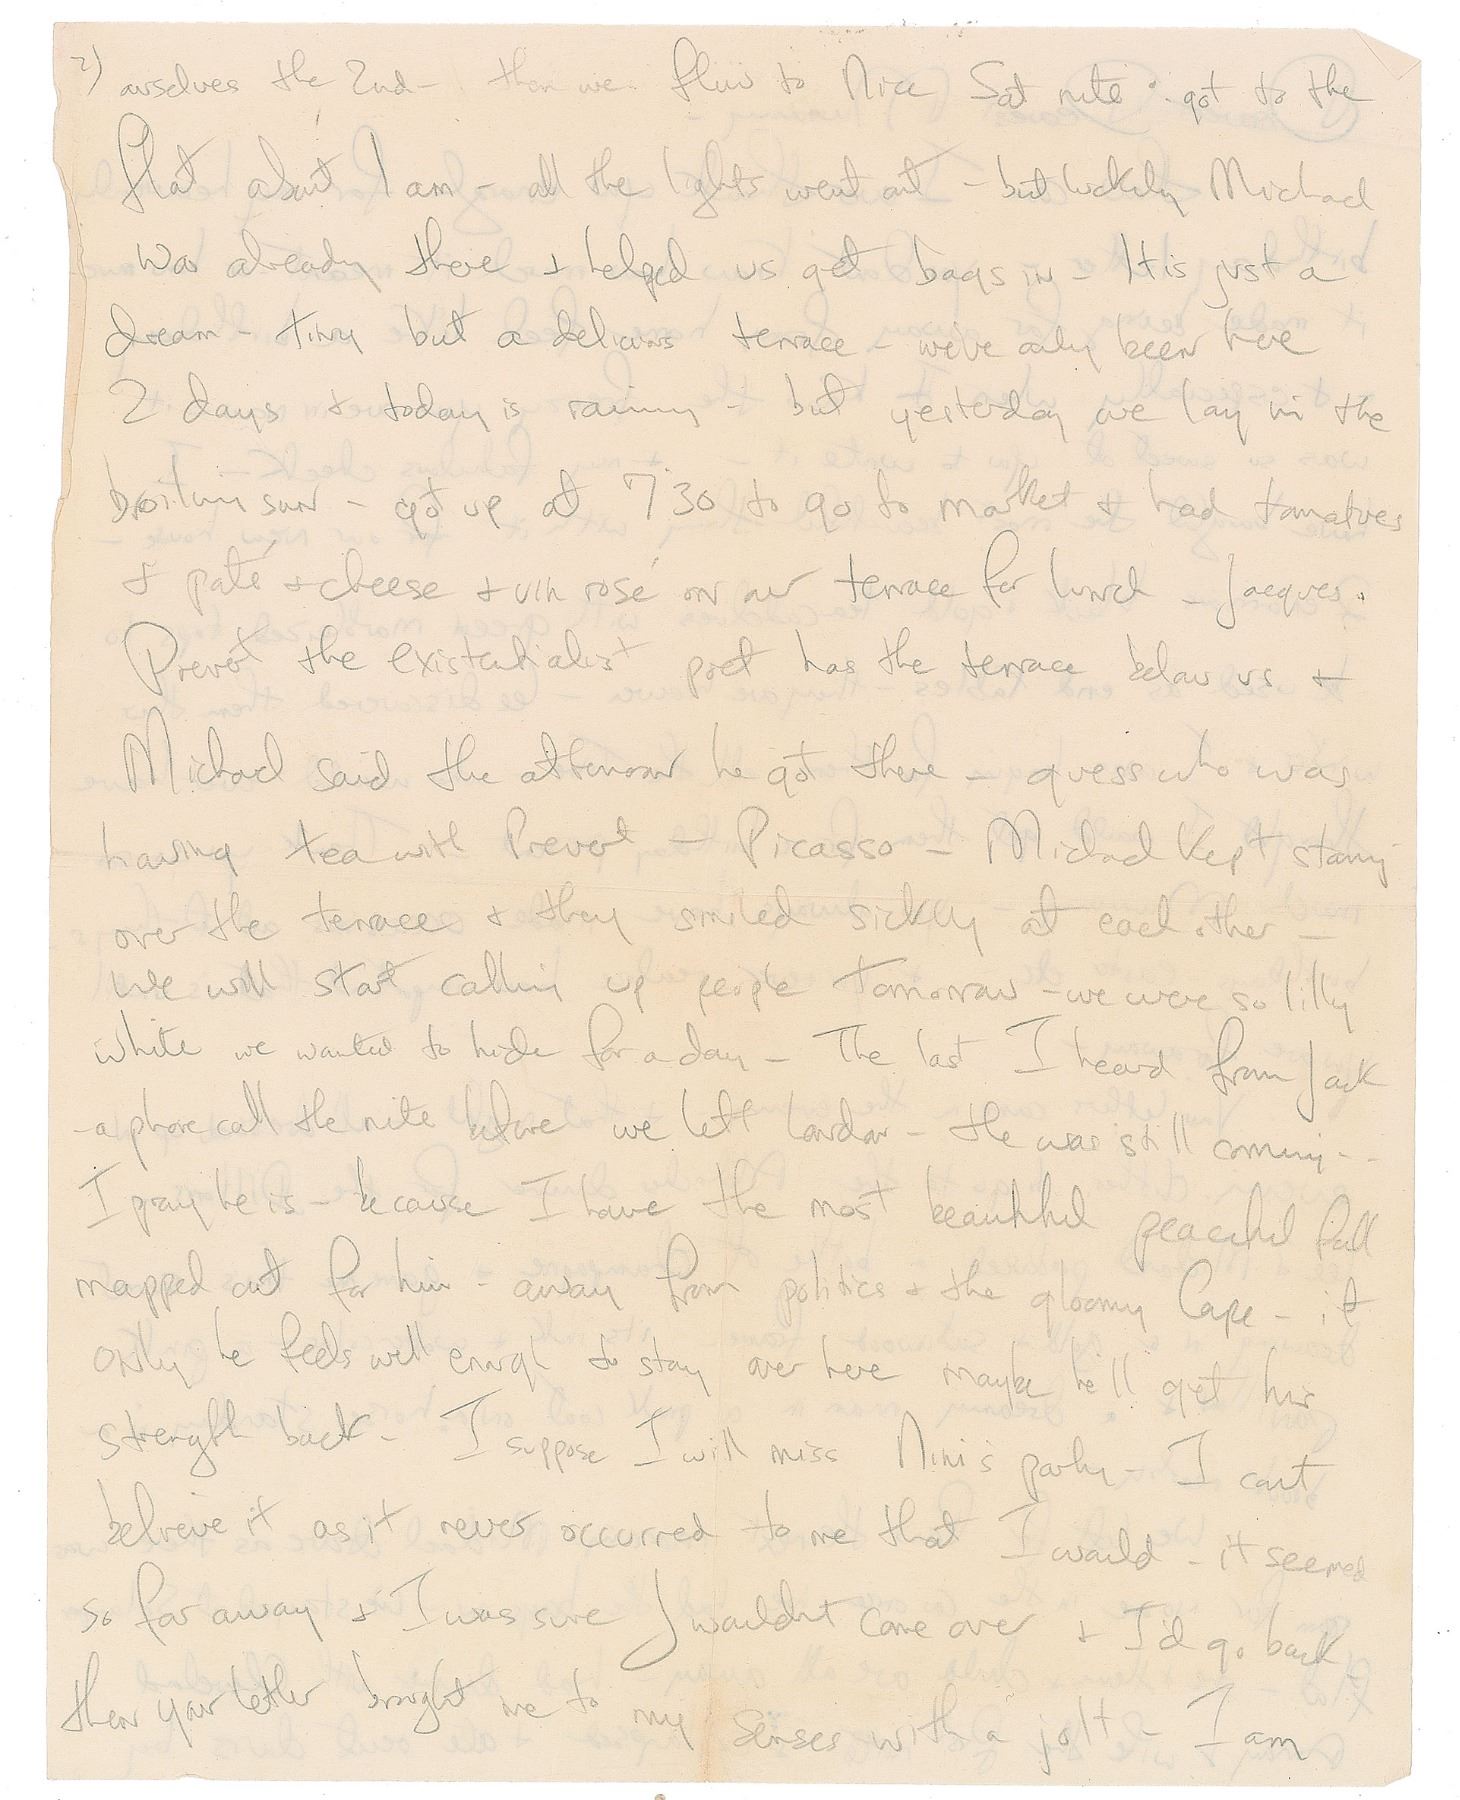 2) ourselves the 2nd - then we flew to Nice Sat nite : got to the
flat about 1 am - all the lights went out - but luckily Michael
was already there + helped us get bags in - It is just a
dream - tiny but a delicious terrace - we've only been here
2 days + today is rainy - but yesterday we lay in the
broiling sun - got up at 7 30 to go to market + had tomatoes
+ paté + cheese + vin rosé on our terrace for lunch - Jacques
Prevert the existentialist poet has the terrace below us +
Michael said the afternoon he got there - guess who was
having tea with Prevert - Picasso - Michael kept staring
over the terrace + they smiled sickly at each other -
We will start calling up people tomorrow - we were so lilly
white we wanted to hide for a day - The last I heard from Jack
- a phone call the nite before we left London - He was still coming - -
I pray he is - because I have the most beautiful peaceful fall
mapped out for him - away from politics + the gloomy Cape - if
only he feels well enough to stay over here maybe he'll get his
strength back - I suppose I will miss Nini's party - I cant
believe it as it never occurred to me that I would - it seemed
so far away + I was sure J wouldnt come over + I'd go back -
then your letter brought me to my senses with a jolt - I am